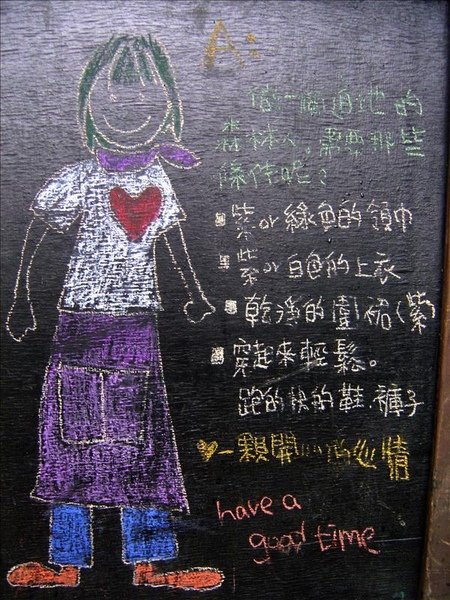 A:
做一個道地的
森林人。需要那些
條件呢?
紫or綠色的領巾
紫or白色的上衣
乾淨的圍裙(紫)
穿起來輕鬆。
跑的快的鞋.褲子
一顆開心的心情
have a
good time